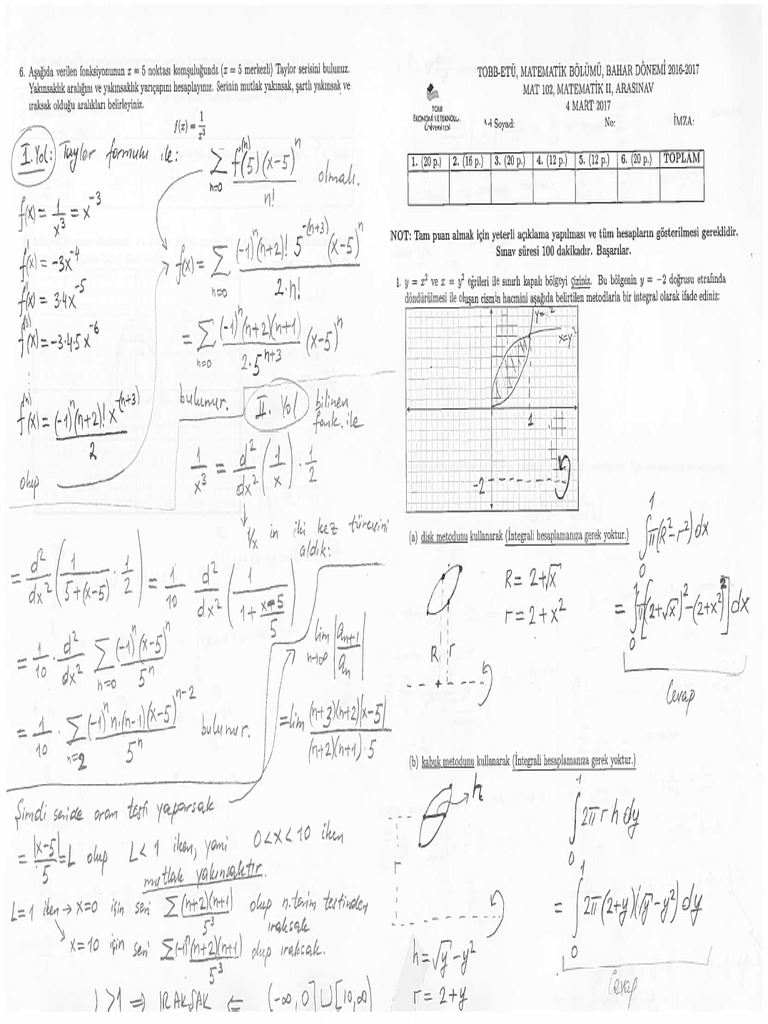 6. Aşağıda verilen fonksiyonunun x = 5 noktası komşuluğunda (x = 5 merkezli) Taylor serisini bulunuz.
Yakınsaklık aralığını ve yakınsaklık yarıçapını hesaplayınız. Serinin mutlak yakınsak, şartlı yakınsak ve
ıraksak olduğu aralıkları belirleyiniz.
f(x) = 1/x³
I. Yol: Taylor formulu ile: ∑_{n=0} f⁽ⁿ⁾(5)(x-5)ⁿ / n! olmalı.
f(x) = 1/x³ = x⁻³
f'(x) = -3x⁻⁴
f''(x) = 3·4x⁻⁵
f⁽³⁾(x) = -3·4·5x⁻⁶
f⁽ⁿ⁾(x) = (-1)ⁿ(n+2)! x^{-(n+3)} / 2
olup
f(x) = ∑_{n=0} (-1)ⁿ(n+2)! 5^{-(n+3)} (x-5)ⁿ / 2·n!
= ∑_{n=0} (-1)ⁿ(n+2)(n+1) / 2·5^{n+3} (x-5)ⁿ
bulunur.
II. Yol bilinen
fonk. ile
1/x³ = d²/dx² (1/x) · 1/2
1/x in iki kez türevini
aldık:
= d²/dx² (1/(5+(x-5)) · 1/2) = 1/10 d²/dx² (1/(1+(x-5)/5))
= 1/10 · d²/dx² ∑_{n=0} (-1)ⁿ(x-5)ⁿ / 5ⁿ
= 1/10 · ∑_{n=2} (-1)ⁿ n·(n-1)(x-5)^{n-2} / 5ⁿ bulunur.
Şimdi seride oran testi yaparsak
lim_{n→∞} |a_{n+1}/a_n|
= lim (n+3)(n+2)|x-5| / (n+2)(n+1)·5
= |x-5|/5 = L olup L<1 iken, yani 0<x<10 iken
mutlak yakınsaktır.
L=1 iken → x=0 için seri ∑ (n+2)(n+1)/5³ olup n. terim testinden
ıraksak
x=10 için seri ∑ (-1)ⁿ(n+2)(n+1)/5³ olup ıraksak.
L>1 ⇒ IRAKSAK ⇐ (-∞,0] ∪ [10,∞)
TOBB-ETÜ, MATEMATİK BÖLÜMÜ, BAHAR DÖNEMİ 2016-2017
MAT 102, MATEMATİK II, ARASINAV
4 MART 2017
TOBB
EKONOMİ VE TEKNOLOJİ
ÜNİVERSİTESİ
Ad Soyad: No: İMZA:
1. (20 p.) 2. (16 p.) 3. (20 p.) 4. (12 p.) 5. (12 p.) 6. (20 p.) TOPLAM
NOT: Tam puan almak için yeterli açıklama yapılması ve tüm hesapların gösterilmesi gereklidir.
Sınav süresi 100 dakikadır. Başarılar.
1. y = x² ve x = y² eğrileri ile sınırlı kapalı bölgeyi çiziniz. Bu bölgenin y = −2 doğrusu etrafında
döndürülmesi ile oluşan cismin hacmini aşağıda belirtilen metodlarla bir integral olarak ifade ediniz:
y=x²
x=y²
1
-2
(a) disk metodunu kullanarak (İntegrali hesaplamanıza gerek yoktur.)
R r
R = 2+√x
r = 2+x²
∫₀¹ π(R²-r²)dx
= ∫₀¹ π[(2+√x)² - (2+x²)²] dx
Cevap
(b) kabuk metodunu kullanarak (İntegrali hesaplamanıza gerek yoktur.)
h
r
h = √y - y²
r = 2+y
∫₀¹ 2π r h dy
= ∫₀¹ 2π(2+y)(√y - y²) dy
Cevap